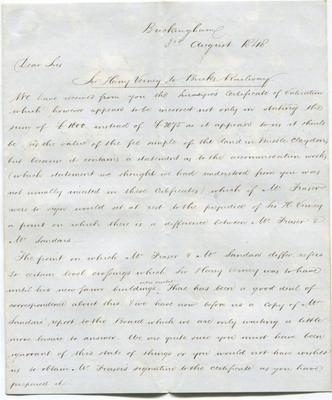 Buckingham
3rd August 1848
Dear Sir
Sir Harry Verney to Bucks Railway
We have received from you the Surveyors Certificate of Valuation
which however appears to be incorrect not only in stating the
sum of £1600 instead of £ as it appears to us it should
be as the value of the fee simple of the land in Middle Claydon
but because it contains a statement as to the accommodation works
(which statement we thought we had understood from you was
not usually inserted in these Certificates) which if Mr Fraser
were to sign would set at rest to the prejudice of Sir H. Verney
a point on which there is a difference between Mr Fraser &
Mr Sandars.
The point on which Mr Fraser & Mr Sandars differ refers
to certain level crossings which Sir Harry Verney was to have
until his new farm buildings There has been a good deal of
correspondence about this & we have now before us a Copy of Mr
Sandars report to the Board which we are only waiting a little
more leisure to answer. We are quite sure you must have been
ignorant of this state of things or you would not have wished
us to obtain Mr Frasers signature to the Certificate as you have
prepared it.